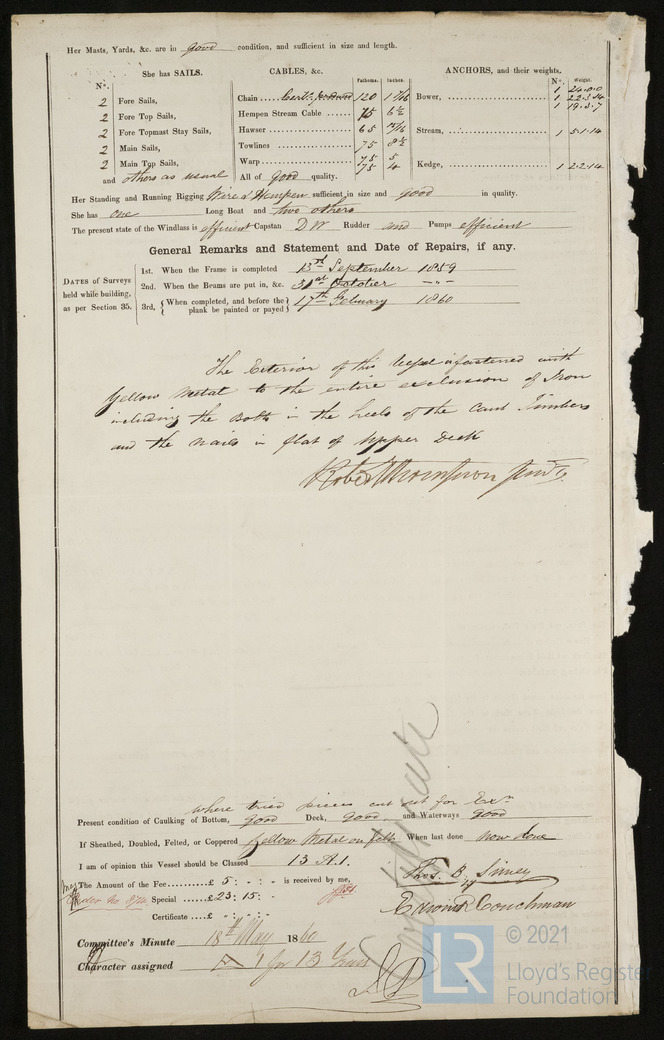 Her Masts, Yards, &c. are in good condition, and sufficient in size and length.
She has SAILS. CABLES, &c. Fathoms. Inches. ANCHORS, and their weights.
No. No. Weight.
2 Fore Sails, Chain 120 1 7/16 Bower, 1 24.0.0
1 22.3.14
2 Fore Top Sails, Hempen Stream Cable 75 6½ 1 19.3.7
2 Fore Topmast Stay Sails, Hawser 65 Stream, 1 5.1.14
2 Main Sails, Towlines 75 8½
2 Main Top Sails, Warp 75 5
75 4 Kedge, 1 2.2.14
and others as usual All of good quality.
Her Standing and Running Rigging Wire & Hempen sufficient in size and good in quality.
She has one Long Boat and two others
The present state of the Windlass is efficient Capstan Do Rudder and Pumps efficient
General Remarks and Statement and Date of Repairs, if any.
DATES of Surveys held while building, as per Section 35.
1st. When the Frame is completed 13th September 1859
2nd. When the Beams are put in, &c. 31st October -"-
3rd, { When completed, and before the plank be painted or payed } 17th February 1860
The Exterior of this Vessel is fastened with
Yellow Metal to the entire exclusion of Iron
including the Bolts in the heels of the Cant Timbers
and the nails in flat of Upper Deck
Robert Thompson Junr
where tried pieces cut out for Exn
Present condition of Caulking of Bottom, good Deck, good and Waterways good
If Sheathed, Doubled, Felted, or Coppered Yellow Metal on felt When last done now done
I am of opinion this Vessel should be Classed 13 A.1.
Thos. B. Simey
The Amount of the Fee £ 5 : - : - is received by me,
Special £ 23 : 15 : -
Edward Couchman
Certificate £ - : - : -
Committee's Minute 18th May 1860
Character assigned A 1 for 13 Years
LR
© 2021
Lloyd's Register
Foundation